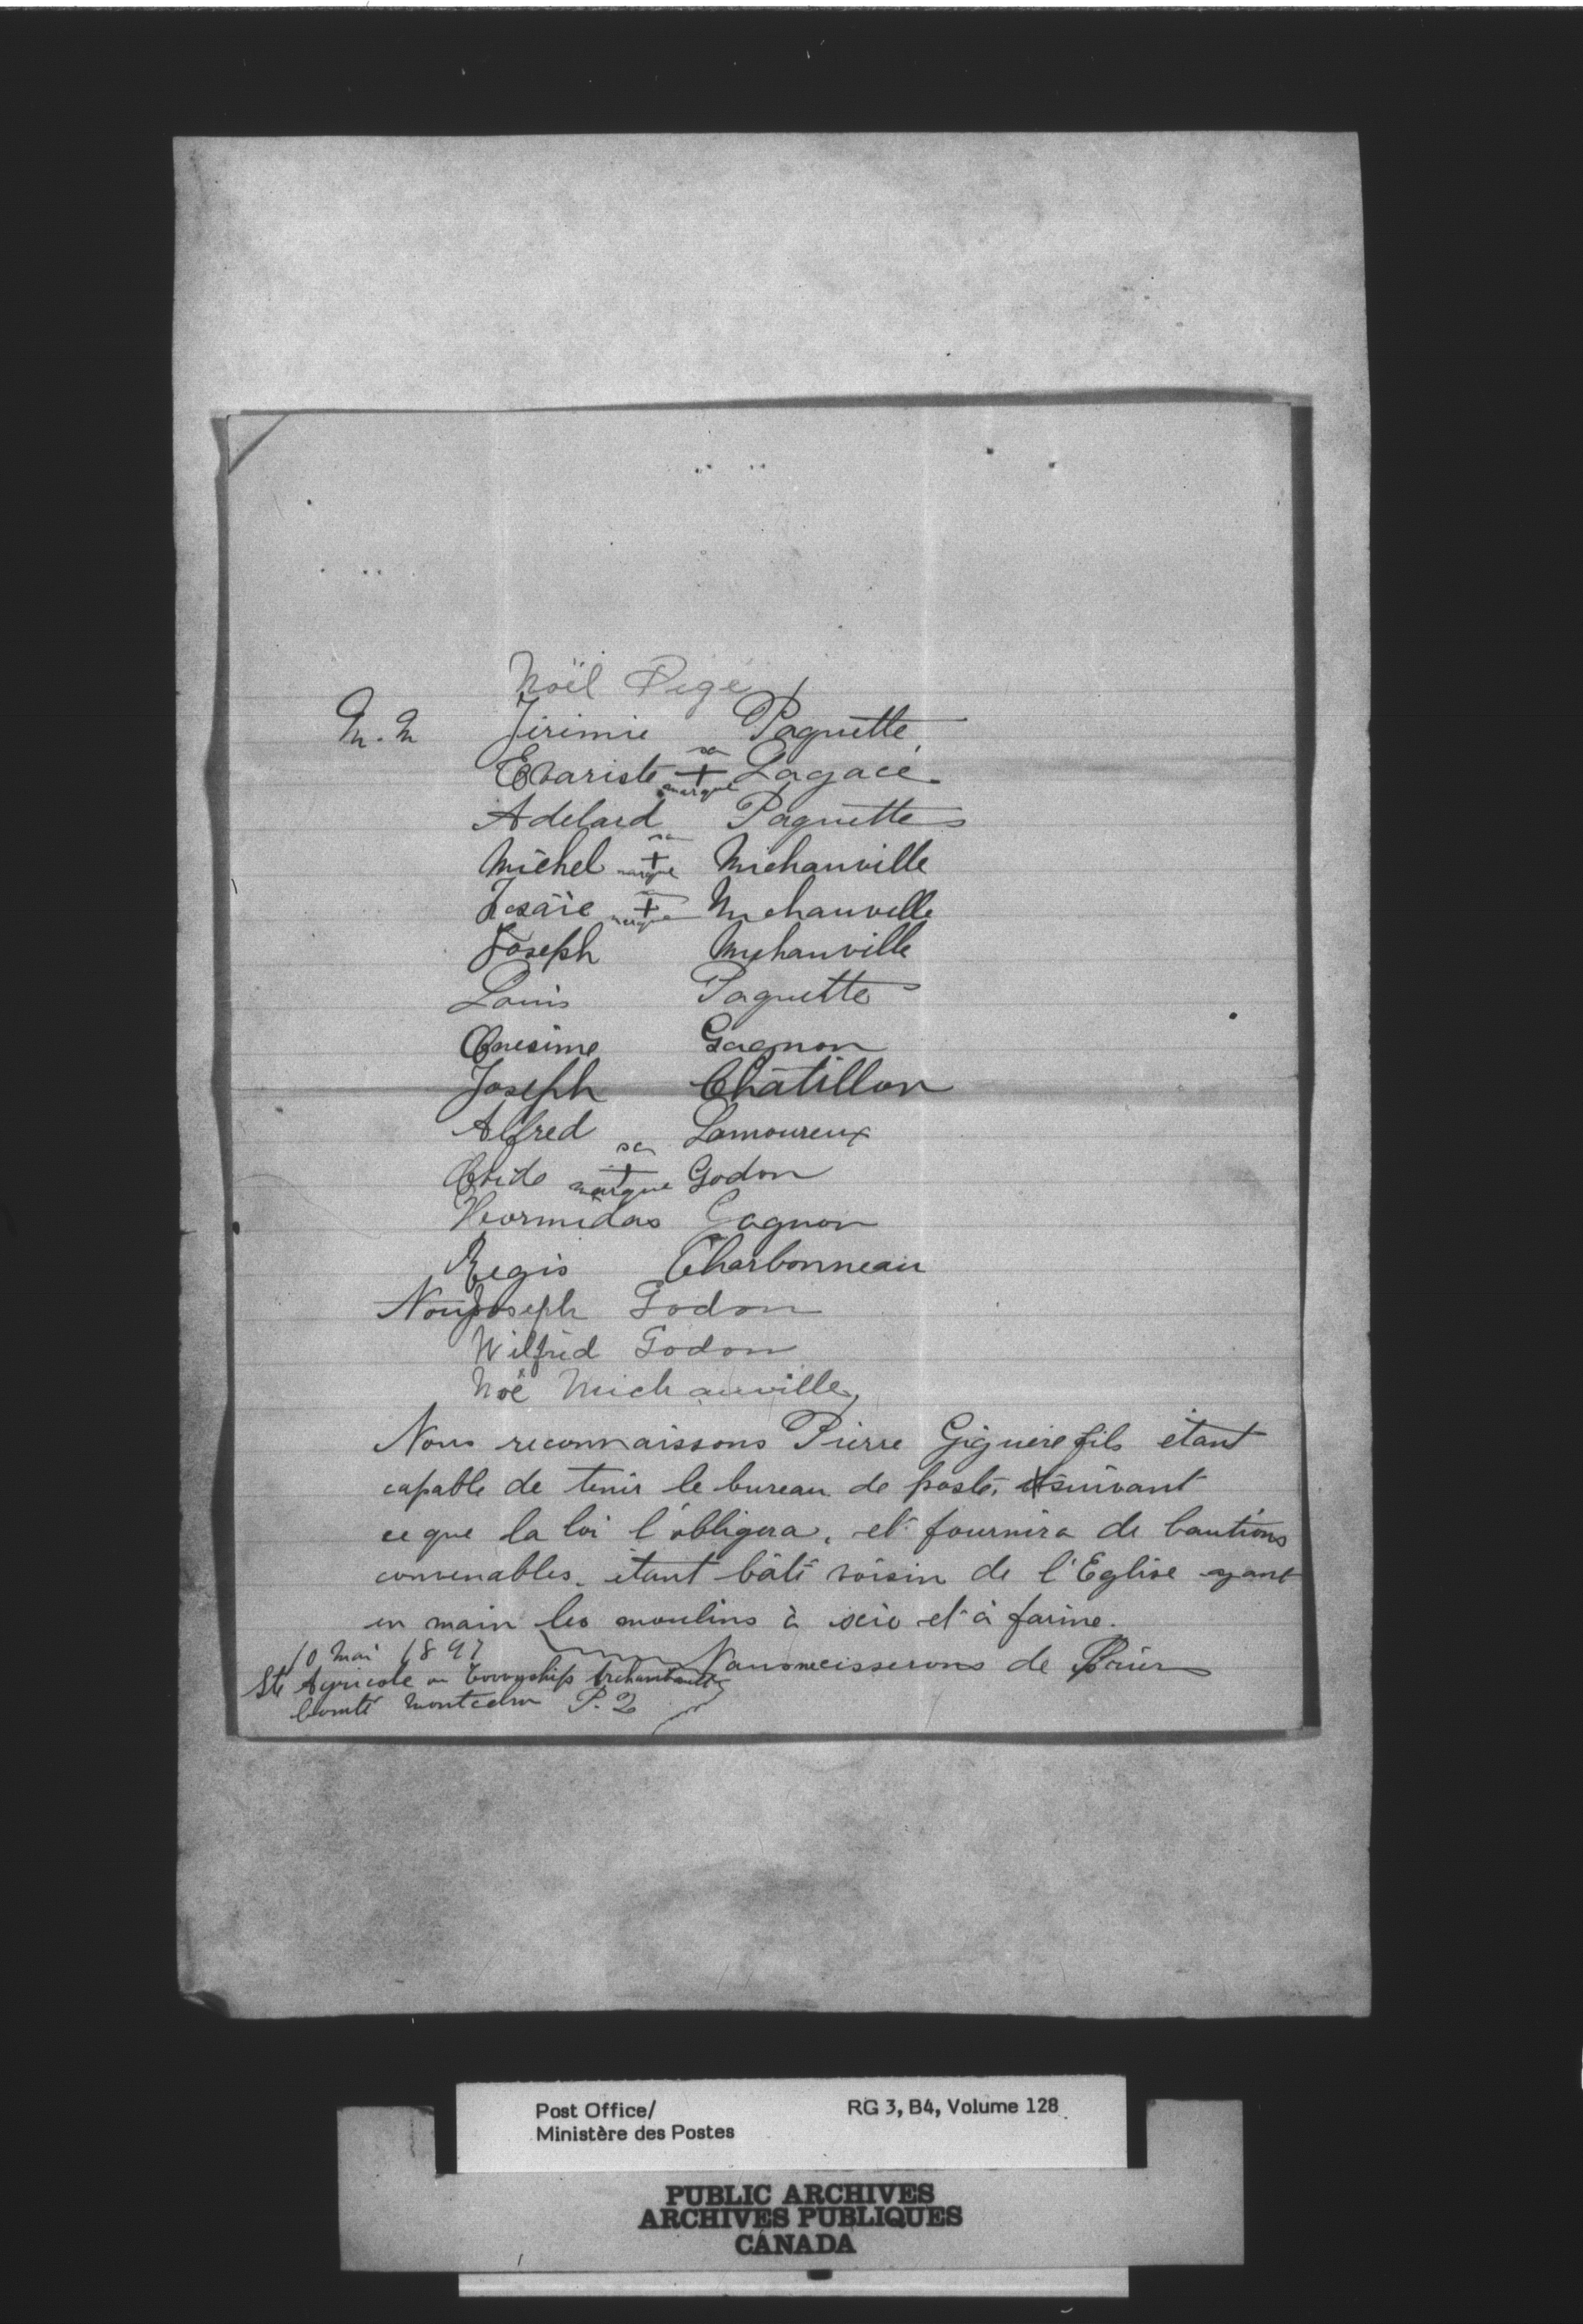 Noël Pegé
M. M Jérimie Paquette
Evariste sa + marque Lagacé
Adelard Paquette
Michel sa + marque Michauville
Isaïe sa + marque Michauville
Joseph Michauville
Louis Paquette
Onesime Gagnon
Joseph Châtillon
Alfred Lamoureux
Ovide sa + marque Godon
Hormidas Gagnon
Regis Charbonneau
Joseph Godon
Wilfrid Godon
Noé Michauville
Nous reconnaissons Pierre Giguere fils étant
capable de tenir le bureau de poste, suivant
ce que la loi l'obligera, et fournira de cautions
convenables. étant bâti voisin de l'Eglise ayant
en main les moulins à scie et à farine.
10 Mai 1897 de
Ste Agricole ou Township Archambault
Comté Montcalm P. Q
Post Office/ RG 3, B4, Volume 128
Ministère des Postes
PUBLIC ARCHIVES
ARCHIVES PUBLIQUES
CANADA